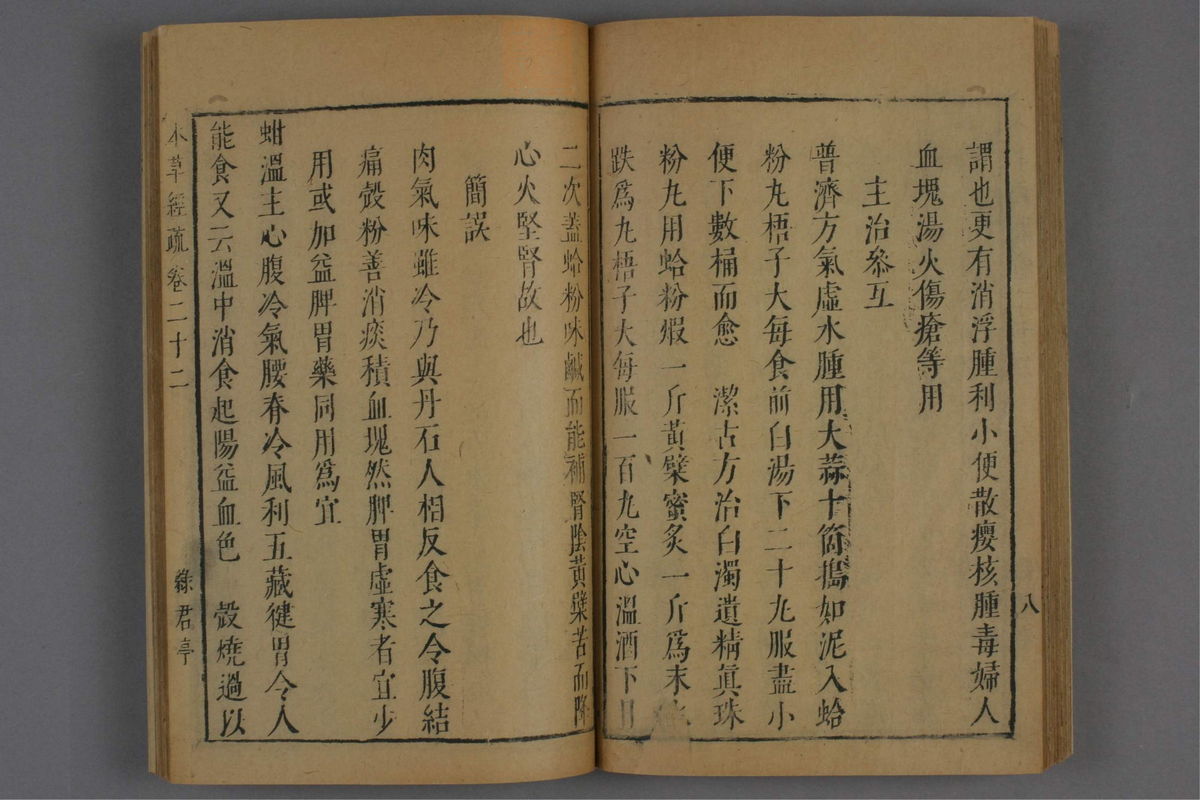 八
謂也更有消浮腫利小便散癭核腫毒婦人
血塊湯火傷瘡等用
主治參互
普濟方氣虛水腫用大蒜十箇搗如泥入蛤
粉丸梧子大每食前白湯下二十九服盡小
便下數桶而愈　潔古方治白濁遺精眞珠
粉丸用蛤粉煆一斤黃檗蜜炙一斤爲末
跌爲丸梧子大每服一百九空心溫酒下日
二次蓋蛤粉味鹹而能補腎陰黃檗苦而降
心火堅腎故也
簡誤
肉氣味雖冷乃與丹石人相反食之令腹結
痛殼粉善消痰積血塊然脾胃虛寒者宜少
用或加益脾胃藥同用爲宜
蚶溫主心腹冷氣腰脊冷風利五藏健胃令人
能食又云溫中消食起陽益血色　殼燒過以
本草經疏　卷二十二　綠君亭